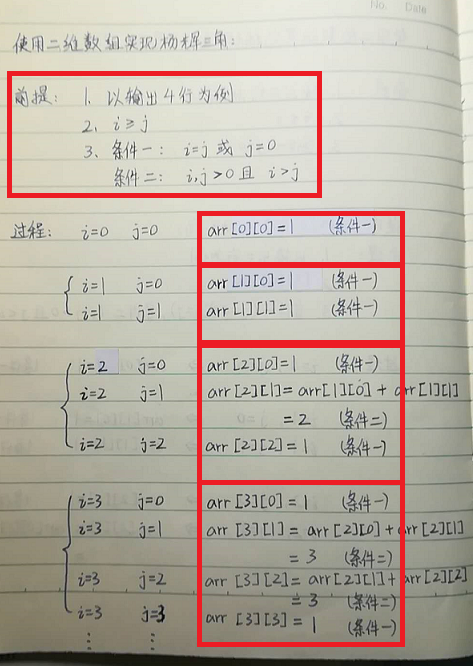 No.    Date
使用二维数组实现杨辉三角:
前提: 1、以输出4行为例
2、i≥j
3、条件一: i=j 或 j=0
条件二: i,j>0且 i>j
过程: i=0 j=0 arr[0][0]=1 (条件一)
i=1 j=0 arr[1][0]=1 (条件一)
i=1 j=1 arr[1][1]=1 (条件一)
i=2 j=0 arr[2][0]=1 (条件一)
i=2 j=1 arr[2][1]=arr[1][0]+arr[1][1]
=2 (条件二)
i=2 j=2 arr[2][2]=1 (条件一)
i=3 j=0 arr[3][0]=1 (条件一)
i=3 j=1 arr[3][1]=arr[2][0]+arr[2][1]
=3 (条件二)
i=3 j=2 arr[3][2]=arr[2][1]+arr[2][2]
=3 (条件二)
i=3 j=3 arr[3][3]=1 (条件一)
⋮ ⋮